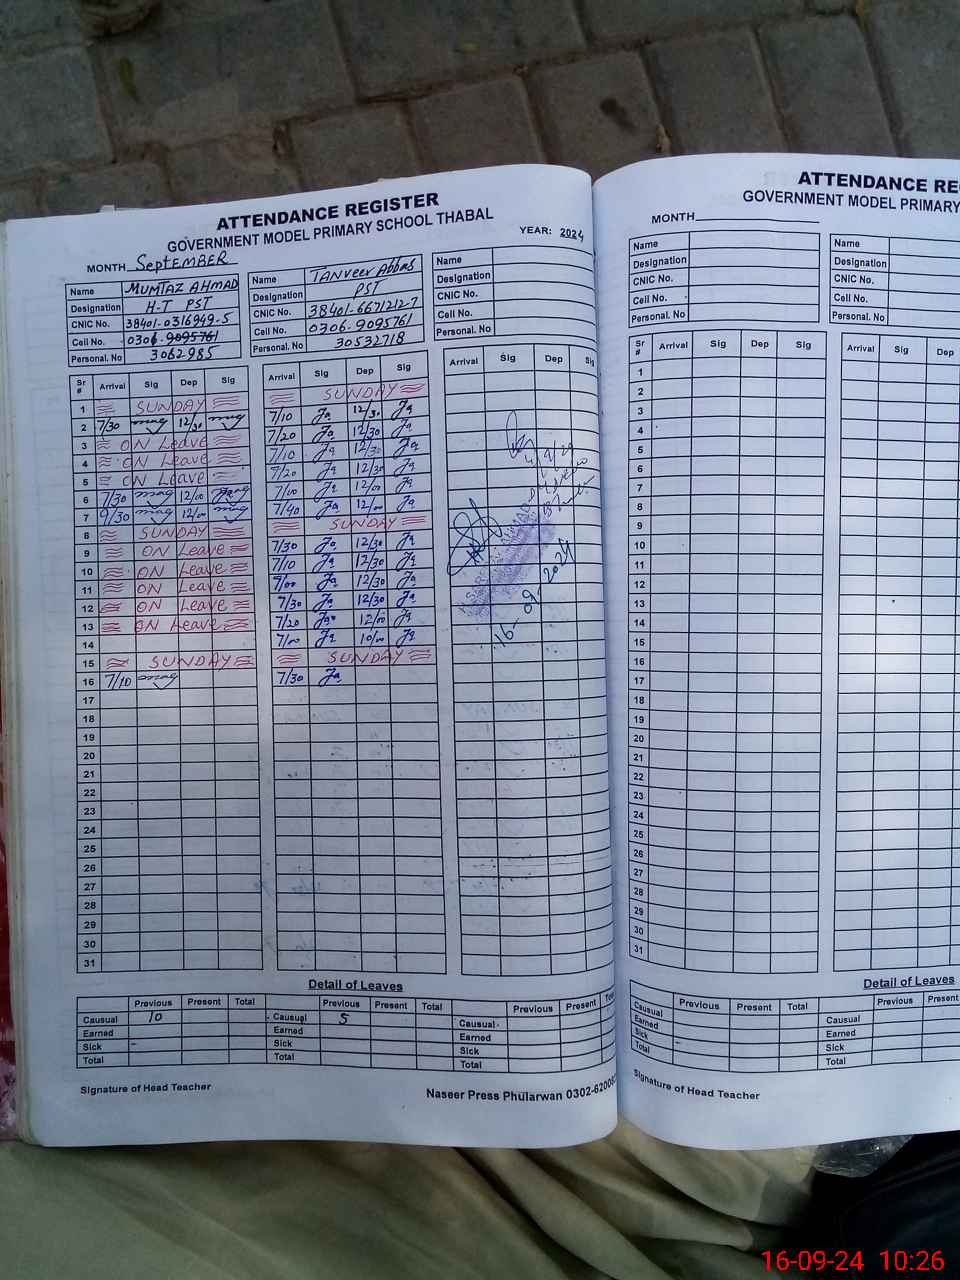 ATTENDANCE REGISTER
GOVERNMENT MODEL PRIMARY SCHOOL THABAL
MONTH SepTEMBER YEAR: 2024
Name MUMTAZ AHMAD
Designation H-T PST
CNIC No. 38401-0316949-5
Cell No. 0306-9095761
Personal. No 3062985
Name TANveer Abbas
Designation PST
CNIC No. 38401-6671212-7
Cell No. 0306-9095761
Personal. No 30532718
Name
Designation
CNIC No.
Cell No.
Personal. No
Sr # Arrival Sig Dep Sig Arrival Sig Dep Sig Arrival Sig Dep Sig
1 SUNDAY SUNDAY
2 7/30 12/30 7/10 12/30
3 ON Leave 7/20 12/30
4 ON Leave 7/10 12/30
5 ON Leave 7/20 12/30
6 7/30 12/00 7/00 12/00
7 9/30 12/00 7/40 12/00
8 SUNDAY SUNDAY
9 ON Leave 7/30 12/30
10 ON Leave 7/10 12/30
11 ON Leave 12/30
12 ON Leave 7/30 12/30
13 ON Leave 7/20 12/00
14 7/00 10/00
15 SUNDAY SUNDAY
16 7/10 7/30
17
18
19
20
21
22
23
24
25
26
27
28
29
30
31
16-09-2024
Detail of Leaves
Previous Present Total Previous Present Total Previous Present
Causual 10 Causual 5 Causual
Earned Earned Earned
Sick Sick Sick
Total Total Total
Signature of Head Teacher Naseer Press Phularwan
ATTENDANCE
GOVERNMENT MODEL PRIMARY
MONTH
Name
Designation
CNIC No.
Cell No.
Personal. No
Name
Designation
CNIC No.
Cell No.
Personal. No
Sr # Arrival Sig Dep Sig Arrival Sig Dep
1
2
3
4
5
6
7
8
9
10
11
12
13
14
15
16
17
18
19
20
21
22
23
24
25
26
27
28
29
30
31
Detail of Leaves
Previous Present Total Previous Present
Causual Causual
Earned Earned
Sick Sick
Total Total
Signature of Head Teacher
16-09-24 10:26